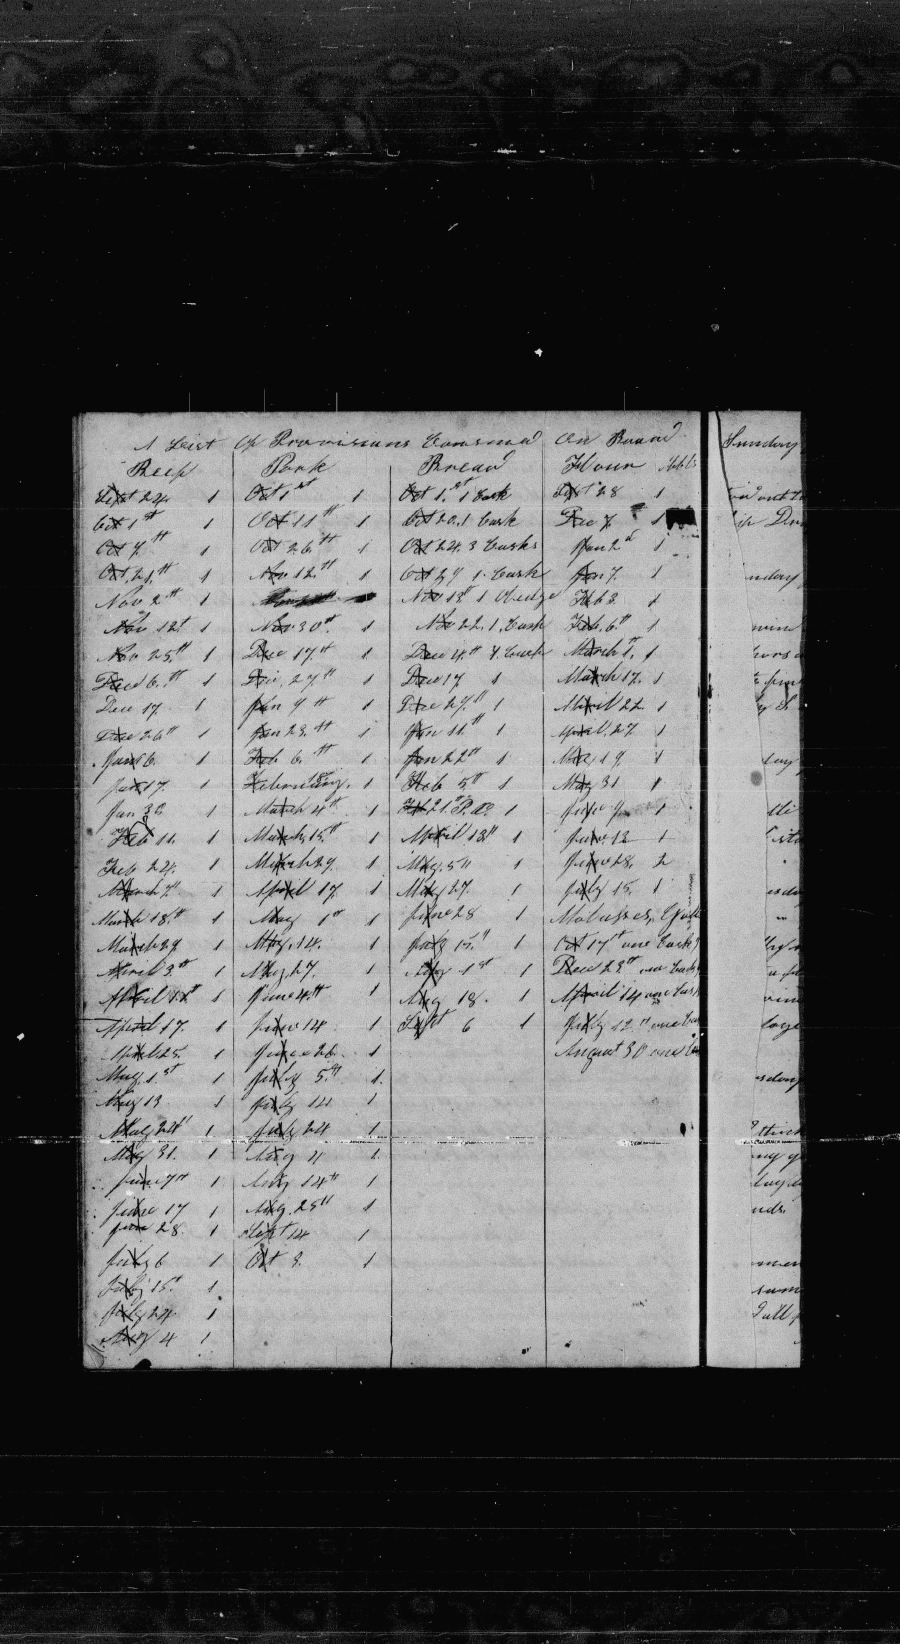 A List Of Provisions Consumd On Board
Beef Pork Bread Flour bbls
Sept 24 1 Oct 1st 1 Oct 1st 1 Cask Sept 28 1
Oct 1st 1 Oct 11th 1 Oct 20. 1 Cask Dec 7th 1
Oct 7th 1 Oct 26th 1 Oct 24. 3 Casks Jan 2d 1
Oct. 21th 1 Nov 12th 1 Oct 29 1. Cask Jan 7. 1
Nov 2th 1 Nov 13th 1 Feb 3 1
Nov 12t 1 Nov 30th. 1 Nov 22. 1. Cask Feb. 6th 1
Nov 25th 1 Dec 17th 1 Dec 4th Cask March 1. 1
Dec 6.th 1 Dec. 27th 1 Dec 17 1 March 17. 1
Dec 17. 1 Jan 9th 1 Dec 27.th 1 April 22 1
Dec 26th 1 Jan 23.th 1 Jan 11th 1 April. 27 1
Jan 6. 1 Feb 6th 1 Jan 22th 1 May 19 1
Jan 17. 1 1 Feb 5th 1 May 31 1
Jan 30 1 March 4th 1 Feb 21. 1 June 1
Feb 11. 1 March. 15.th 1 April 13th 1 June. 12 1
Feb 24. 1 March 29 1 May. 5th 1 June 28. 2
March 1 April 17. 1 May 27. 1 July 15. 1
March 18th 1 May 1st 1 June 28 1 Molasses,
March 29 1 May. 14. 1 July 15.th 1 Oct 17th one Cask
April 3th 1 May 27. 1 Aug 1st 1 Dec 23th one Cask
April 12th 1 June 4.th 1 Aug 18. 1 April 14 one Cask
April 17. 1 June 14 1 Sept 6 1 July 12.th one
April 25. 1 June 26. 1 August 30 one
May. 1.st 1 July 5.th 1.
May 13 1 July 14 1
May 24th 1 July 24 1
May 31. 1 Aug 4 1.
June 7th 1 Aug 14th 1
June 17 1 Aug. 25th 1
June 28. 1 Sept 14 1
July 6 1 Oct 8. 1
July 15.t 1
July 24 1
Aug 4 1
Sunday